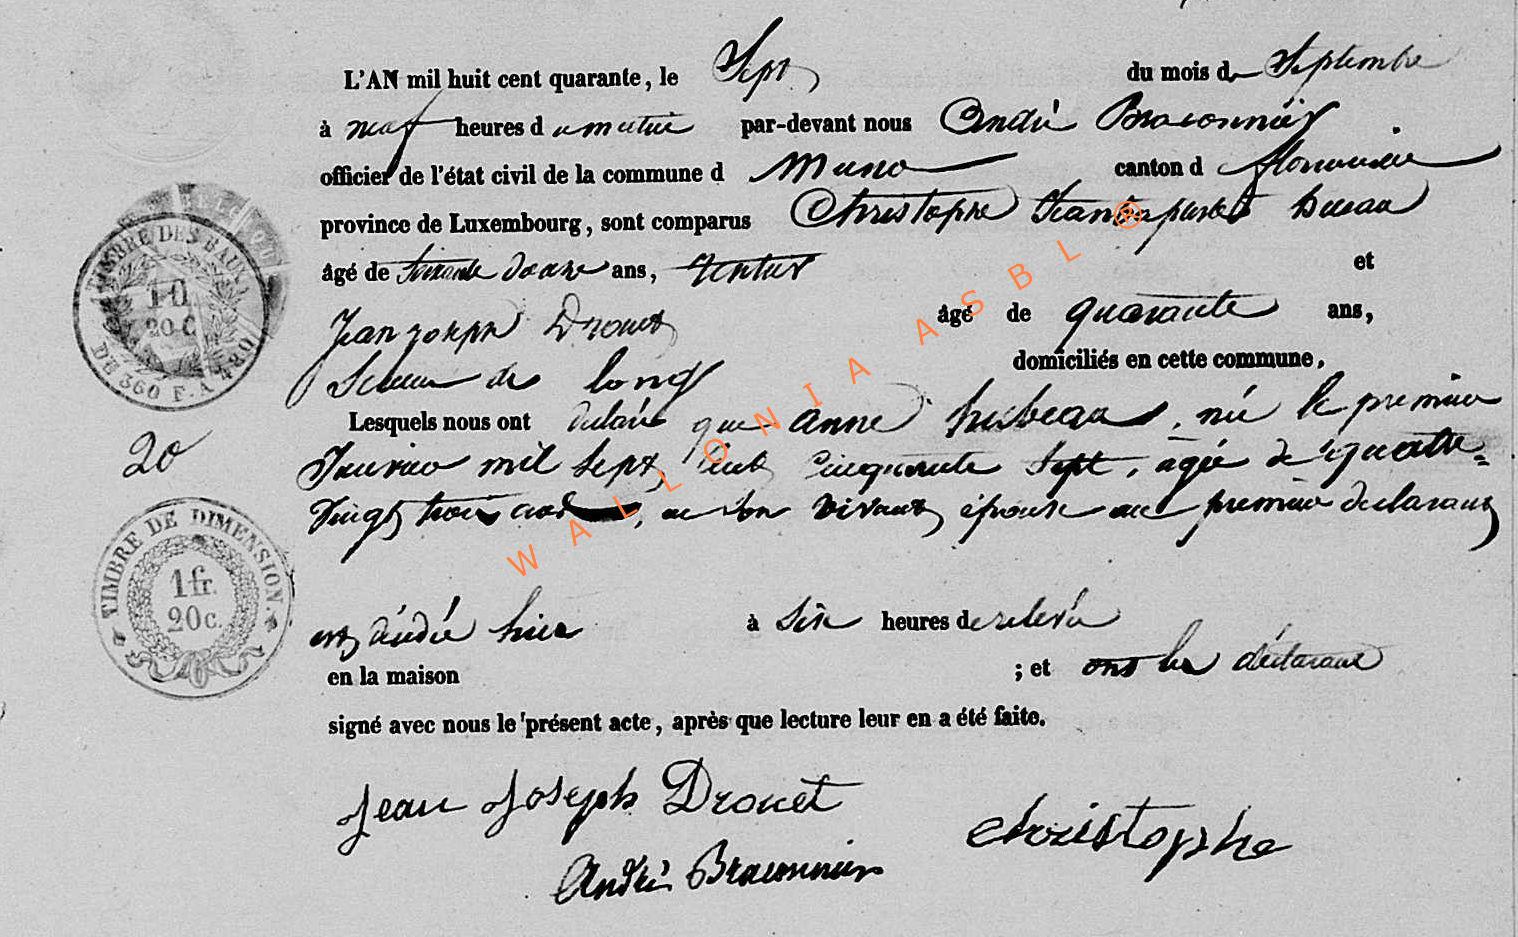 L'AN mil huit cent quarante, le Sept du mois de Septembre
à neuf heures du matin par-devant nous André Braconnier
officier de l'état civil de la commune d Muno canton d florenville
province de Luxembourg, sont comparus Christophe Jean hubeau
âgé de soixante douze ans, rentier et
Jean joseph Drouet âgé de quarante ans,
Scieur de long domiciliés en cette commune,
Lesquels nous ont déclaré que anne husbeau, née le premier
Janvier mil Sept cent Cinquante Sept, agée de quatre=
Vingt trois ans, en son vivant épouse au premier declarant
est décédée hier à six heures de relevée
en la maison ; et ont les déclarans
signé avec nous le présent acte, après que lecture leur en a été faite.
Jean Joseph Drouet
christophe
André Braconnier
TIMBRE DES BAUX
10
20 C
DE 360 F. A 480
20
TIMBRE DE DIMENSION
1 fr.
20 c.
WALLONIA ASBL ®